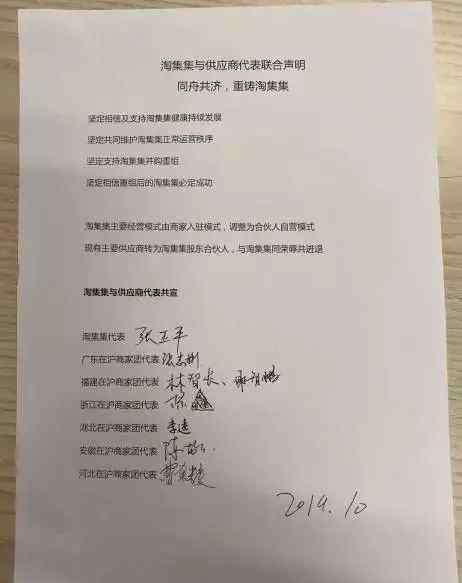 淘集集与供应商代表联合声明
同舟共济，重铸淘集集
坚定相信及支持淘集集健康持续发展
坚定共同维护淘集集正常运营秩序
坚定支持淘集集并购重组
坚定相信重组后的淘集集必定成功
淘集集主要经营模式由商家入驻模式，调整为合伙人自营模式
现有主要供应商转为淘集集股东合伙人，与淘集集同荣辱共进退
淘集集与供应商代表共宣
淘集集代表 张正平
广东在沪商家团代表
福建在沪商家团代表 林智长、
浙江在沪商家团代表
湖北在沪商家团代表 李达
安徽在沪商家团代表 陈
河北在沪商家团代表
2019.10